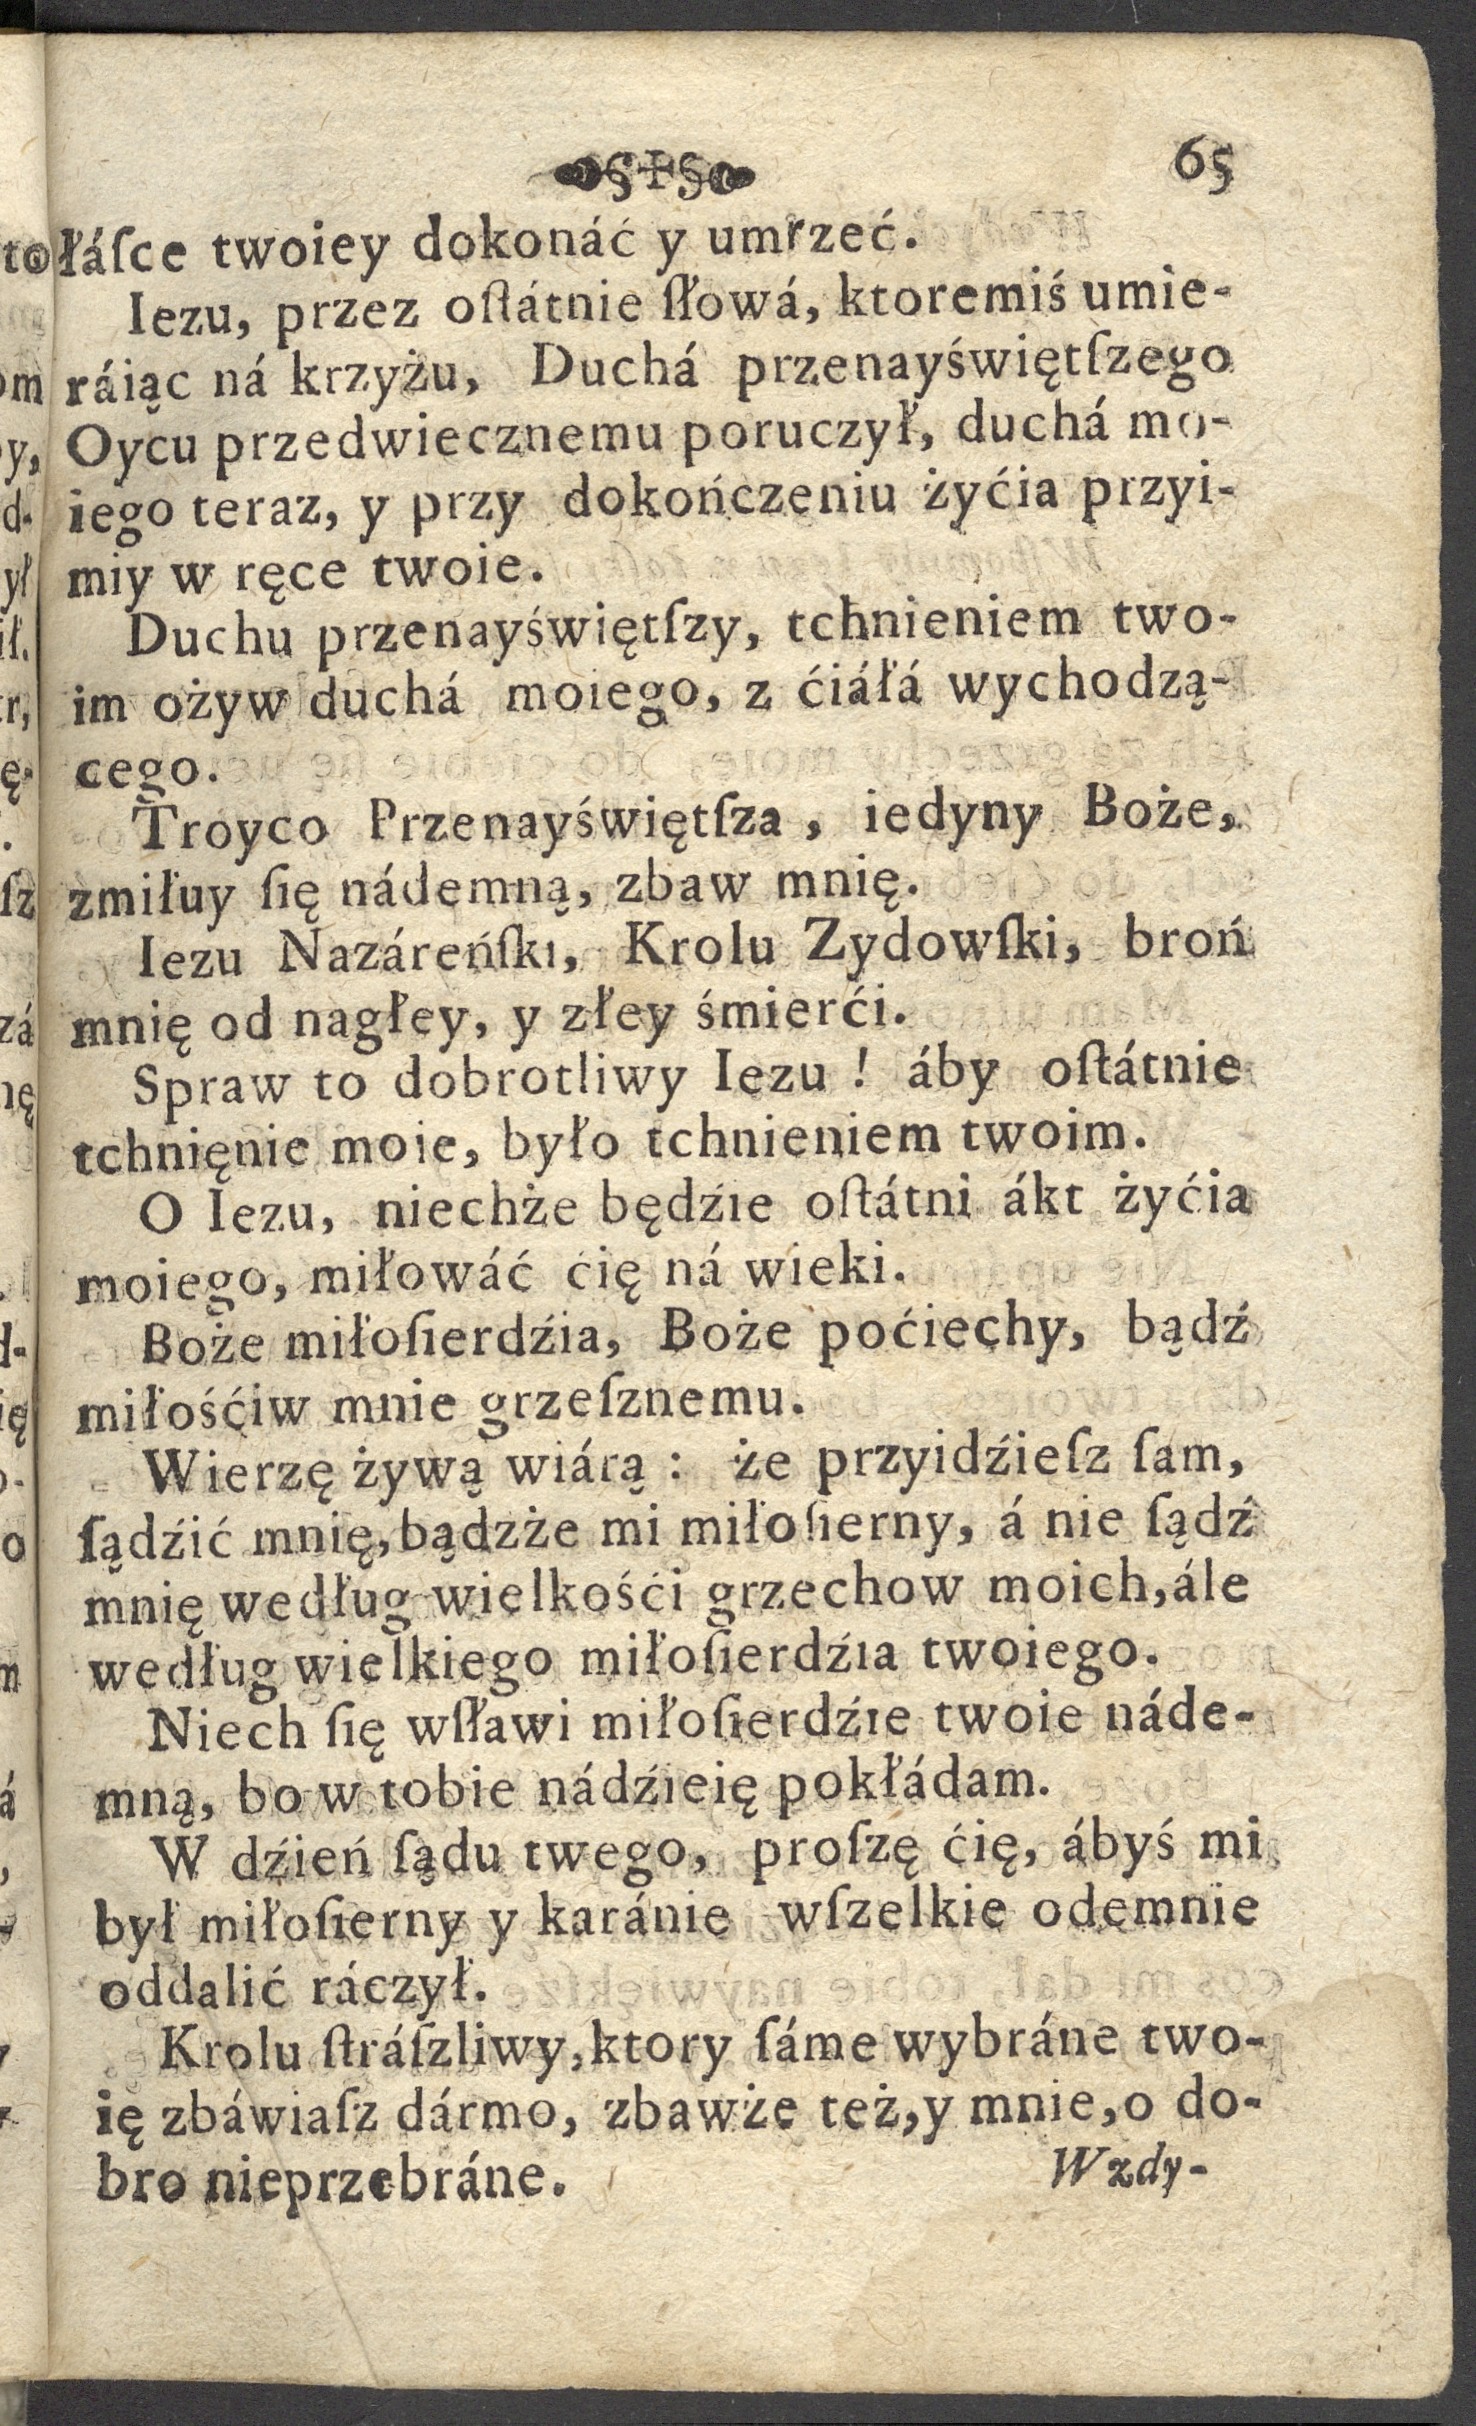 65
łáſce twoiey dokonáć y umrzeć.
Iezu, przez oſtátnie ſłowá, ktoremiś umie-
ráiąc ná krzyżu, Duchá przenayświętſzego
Oycu przedwiecznemu poruczył, duchá mo-
iego teraz, y przy dokończeniu żyćia przyi-
miy w ręce twoie.
Duchu przenayświętſzy, tchnieniem two-
im ożyw duchá moiego, z ćiáłá wychodzą-
cego.
Troyco Przenayświętſza, iedyny Boże,
zmiłuy ſię nádemną, zbaw mnię.
Iezu Nazáreńſki, Krolu Zydowſki, broń
mnię od nagłey, y złey śmierći.
Spraw to dobrotliwy Iezu ! áby oſtátnie
tchnięnie moie, było tchnieniem twoim.
O Iezu, niechże będźie oſtátni ákt żyćia
moiego, miłowáć ćię ná wieki.
Boże miłoſierdźia, Boże poćiechy, bądź
miłośćiw mnie grzeſznemu.
Wierzę żywą wiárą : że przyidźieſz ſam,
ſądźić mnię, bądzże mi miłoſierny, á nie ſądź
mnię według wielkośći grzechow moich, ále
według wielkiego miłoſierdźia twoiego.
Niech ſię wſławi miłoſierdźie twoie náde-
mną, bo w tobie nádźieię pokłádam.
W dźień ſądu twego, proſzę ćię, ábyś mi
był miłoſierny y karánie wſzelkie odemnie
oddalić ráczył.
Krolu ſtráſzliwy, ktory ſáme wybráne two-
ię zbáwiaſz dármo, zbawże też, y mnie, o do-
bro nieprzebráne.
Wzdy-